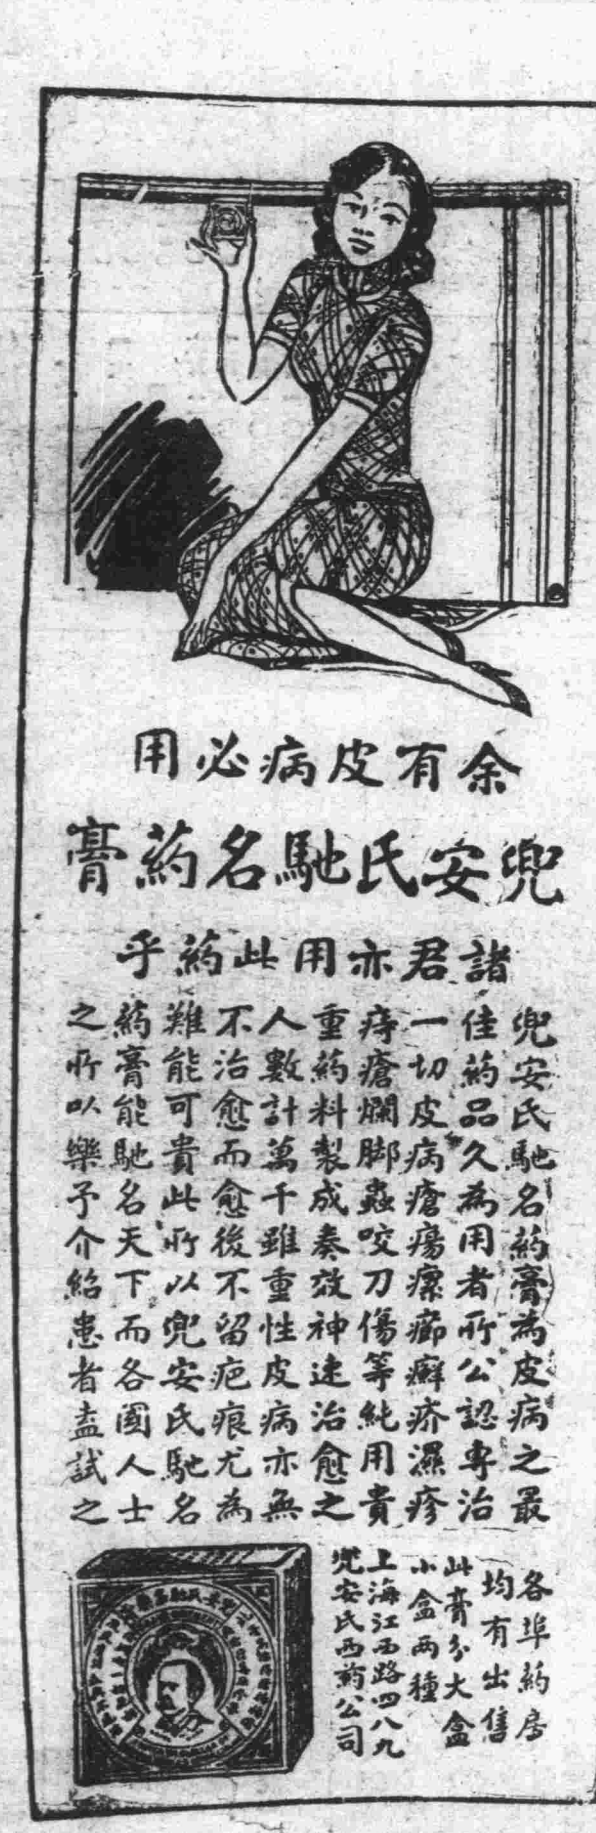 余有皮病必用
兜安氏馳名药膏
諸君亦用此药乎
兜安氏馳名药膏為皮病之最
佳药品久為用者所公認專治
一切皮病瘡瘍瘰癤癬疥濕疹
痔瘡爛脚蟲咬刀傷等純用貴
重药料製成奏效神速治愈之
人數計萬千雖重性皮病亦無
不治愈而愈後不留疤痕尤為
難能可貴此所以兜安氏馳名
药膏能馳名天下而各國人士
之所以樂予介紹患者盍試之
各埠药房
均有出售
此膏分大盒
小盒两種
上海江西路四八九
兜安氏西药公司